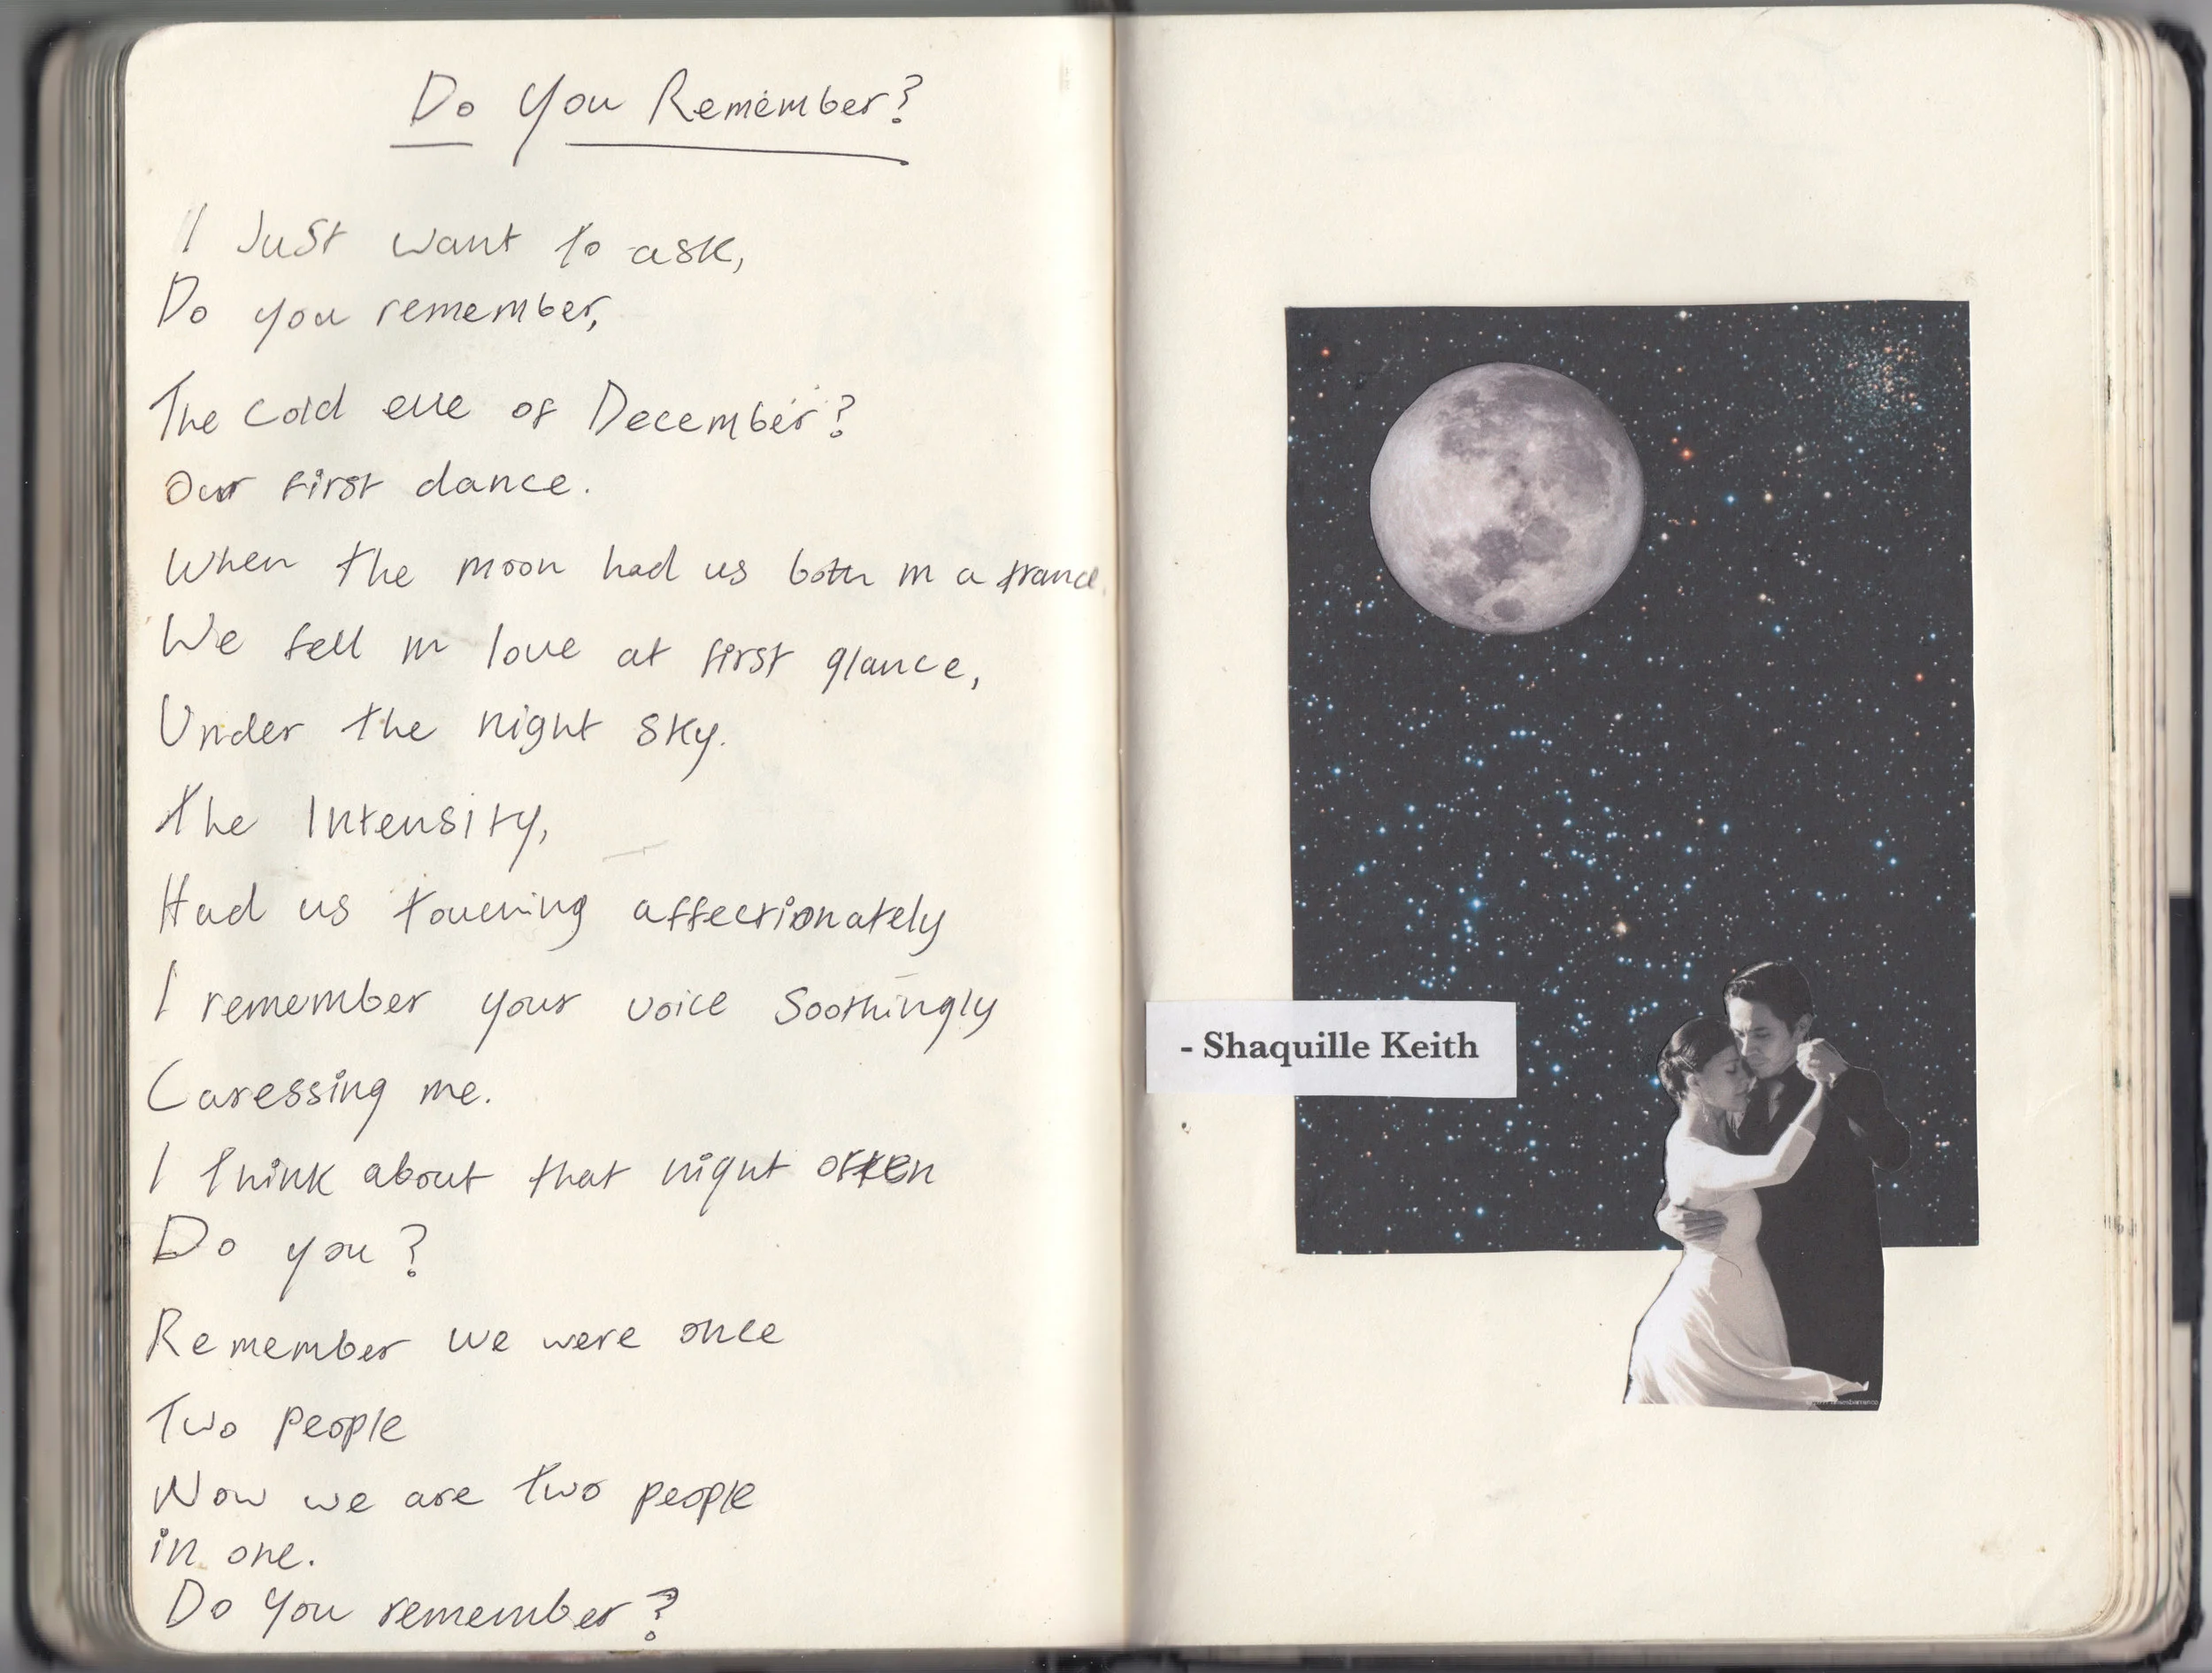 Do You Remember?
I Just want to ask,
Do you remember,
The cold eve of December?
Our first dance.
When the moon had us both in a trance.
We fell in love at first glance,
Under the night sky.
The Intensity,
Had us touching affectionately
I remember your voice Soothingly
Caressing me.
I think about that night often
Do you?
Remember we were once
Two people
Now we are two people
in one.
Do You remember?
- Shaquille Keith